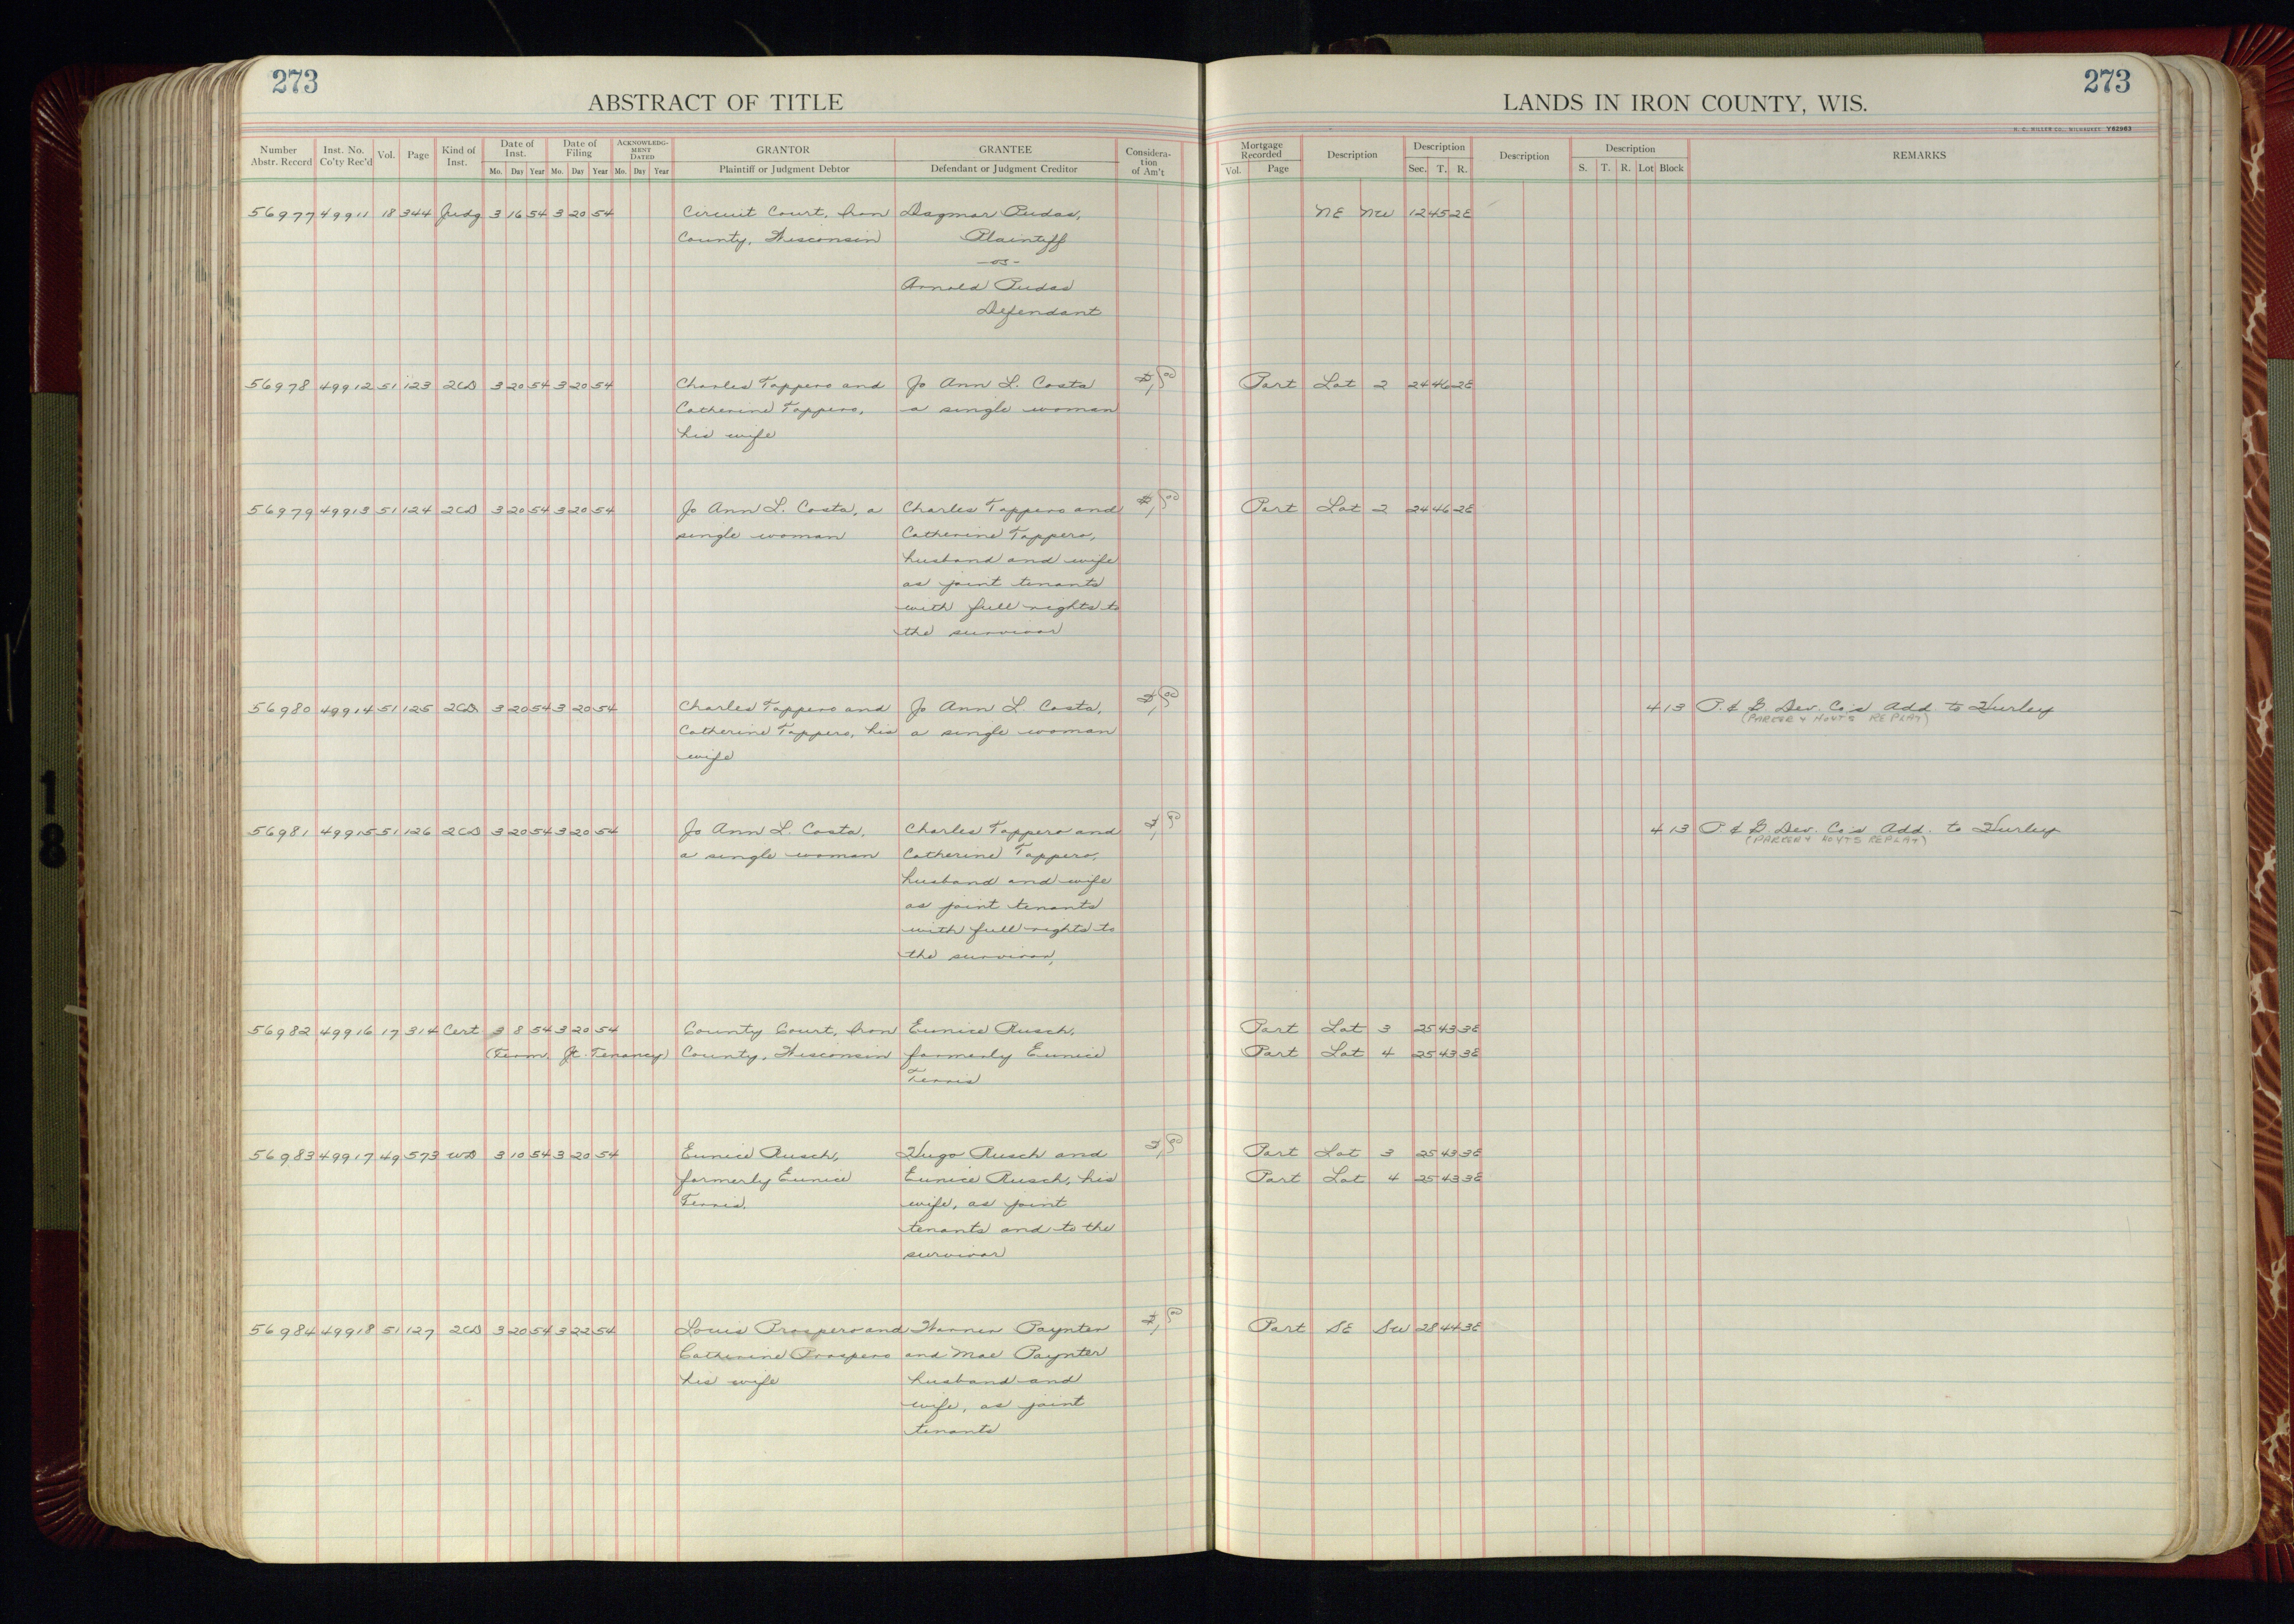 273
ABSTRACT OF TITLE
LANDS IN IRON COUNTY, WIS.
273
H. C. MILLER CO., MILWAUKEE Y82963
Number Abstr. Record Inst. No. Co'ty Rec'd Vol. Page Kind of Inst. Date of Inst. Mo. Day Year Date of Filing Mo. Day Year ACKNOWLEDGMENT DATED Mo. Day Year GRANTOR Plaintiff or Judgment Debtor GRANTEE Defendant or Judgment Creditor Consideration of Am't Mortgage Recorded Vol. Page Description Description Sec. T. R. Description Description S. T. R. Lot Block REMARKS
56977 49911 18 344 Judg 3 16 54 3 20 54 Circuit Court, Iron Dagmar Rudas, NE NW 12 45 2E
County, Wisconsin Plaintiff
-vs-
Arnold Rudas
Defendant
56978 49912 51 123 2CD 3 20 54 3 20 54 Charles Tappero and Jo Ann L. Costa $1.00 Part Lot 2 24 46 2E
Catherine Tappero, a single woman
his wife
56979 49913 51 124 2CD 3 20 54 3 20 54 Jo Ann L. Costa, a Charles Tappero and $1.00 Part Lot 2 24 46 2E
single woman Catherine Tappero,
husband and wife
as joint tenants
with full rights to
the survivor
56980 49914 51 125 2CD 3 20 54 3 20 54 Charles Tappero and Jo Ann L. Costa, $1.00 4 13 P. & G. Dev. Co's Add. to Hurley
(PARKER & HOYTS REPLAT)
Catherine Tappero, his a single woman
wife
56981 49915 51 126 2CD 3 20 54 3 20 54 Jo Ann L. Costa, Charles Tappero and 4 13 P. & G. Dev. Co's Add. to Hurley
(PARKER & HOYTS REPLAT)
a single woman Catherine Tappero,
husband and wife
as joint tenants
with full rights to
the survivor,
56982 49916 17 314 Cert 3 8 54 3 20 54 County Court, Iron Eunice Rusch, Part Lot 3 25 43 3E
(Term. Jt. Tenancy) County, Wisconsin formerly Eunice Part Lot 4 25 43 3E
56983 49917 49 573 WD 3 10 54 3 20 54 Eunice Rusch, Hugo Rusch and $1.00 Part Lot 3 25 43 3E
formerly Eunice Eunice Rusch, his Part Lot 4 25 43 3E
wife, as joint
tenants and to the
survivor
56984 49918 51 127 2CD 3 20 54 3 22 54 Louis Prospero and Warren Paynter $1.00 Part SE SW 28 44 3E
Catherine Prospero and Mae Paynter
his wife husband and
wife, as joint
tenants
18